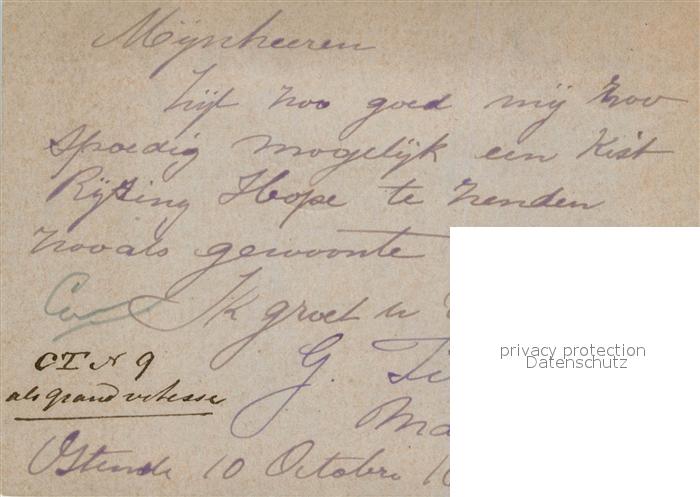 Mijnheeren
Zijt zoo goed mij zoo
spoedig mogelijk een Kist
Rijzing Hope te zenden
zooals gewoonte
Ik groet u
G.
CT N 9
als grand vitesse
Ostende 10 Octobre 1
privacy protection
Datenschutz